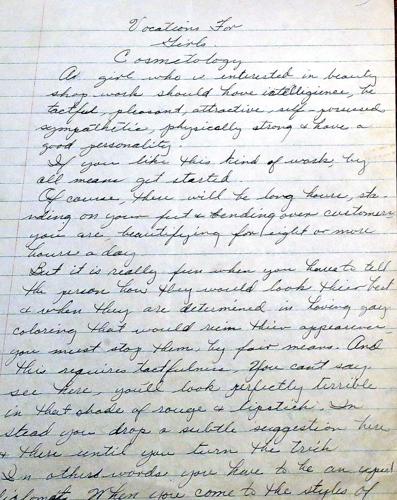 Vocations For
Girls
Cosmetology
A girl who is interested in beauty
shop work should have intelligence, be
tactful, pleasant, attractive, self-possessed
sympathetic, physically strong & have a
good personality.
If you like this kind of work, by
all means get started
Of course, there will be long hours, sta-
nding on your feet & bending over customers
you are beautifying for eight or more
hours a day
But it is really fun when you have to tell
the person how they would look their best
& when they are determined in having gay
coloring that would ruin their appearance
you must stop them by fair means. And
this requires tactfulness. You can't say
see here, you'll look perfectly terrible
in that shade of rouge & lipstick. In
stead you drop a subtle suggestion here
& there until you turn the trick
In others words you have to be an expert
When you come to the styles of